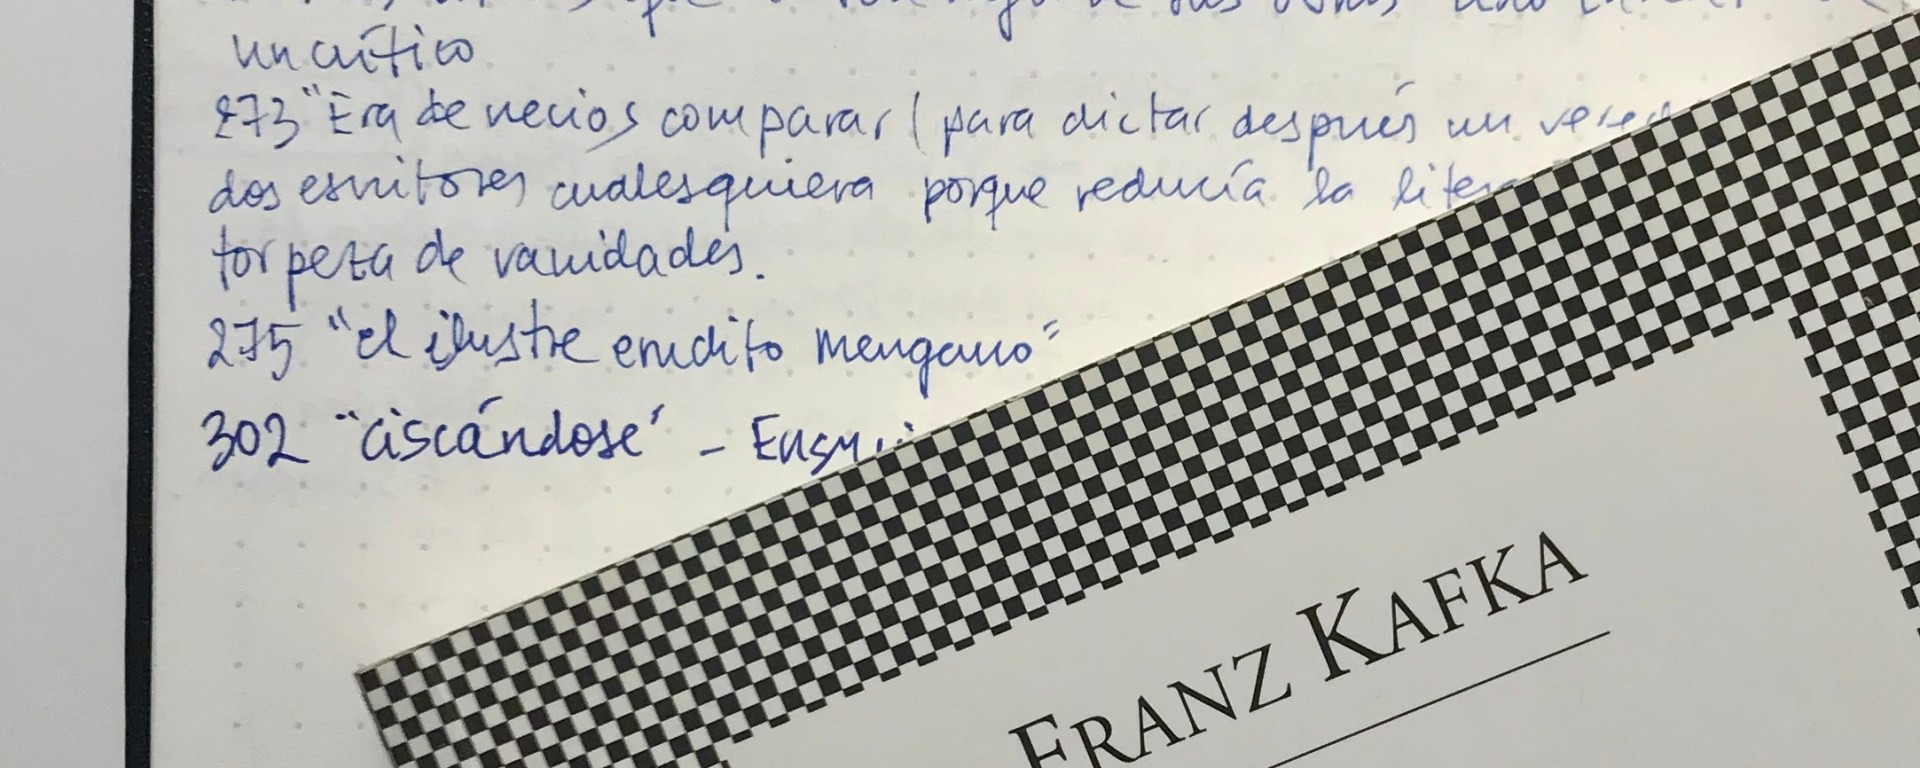 que
un crítico
273 "Era de necios comparar (para dictar después un
dos escritores cualesquiera porque reducía la
torpeza de vanidades.
275 "el ilustre erudito mengano"
302 "ciscándose" -
FRANZ KAFKA